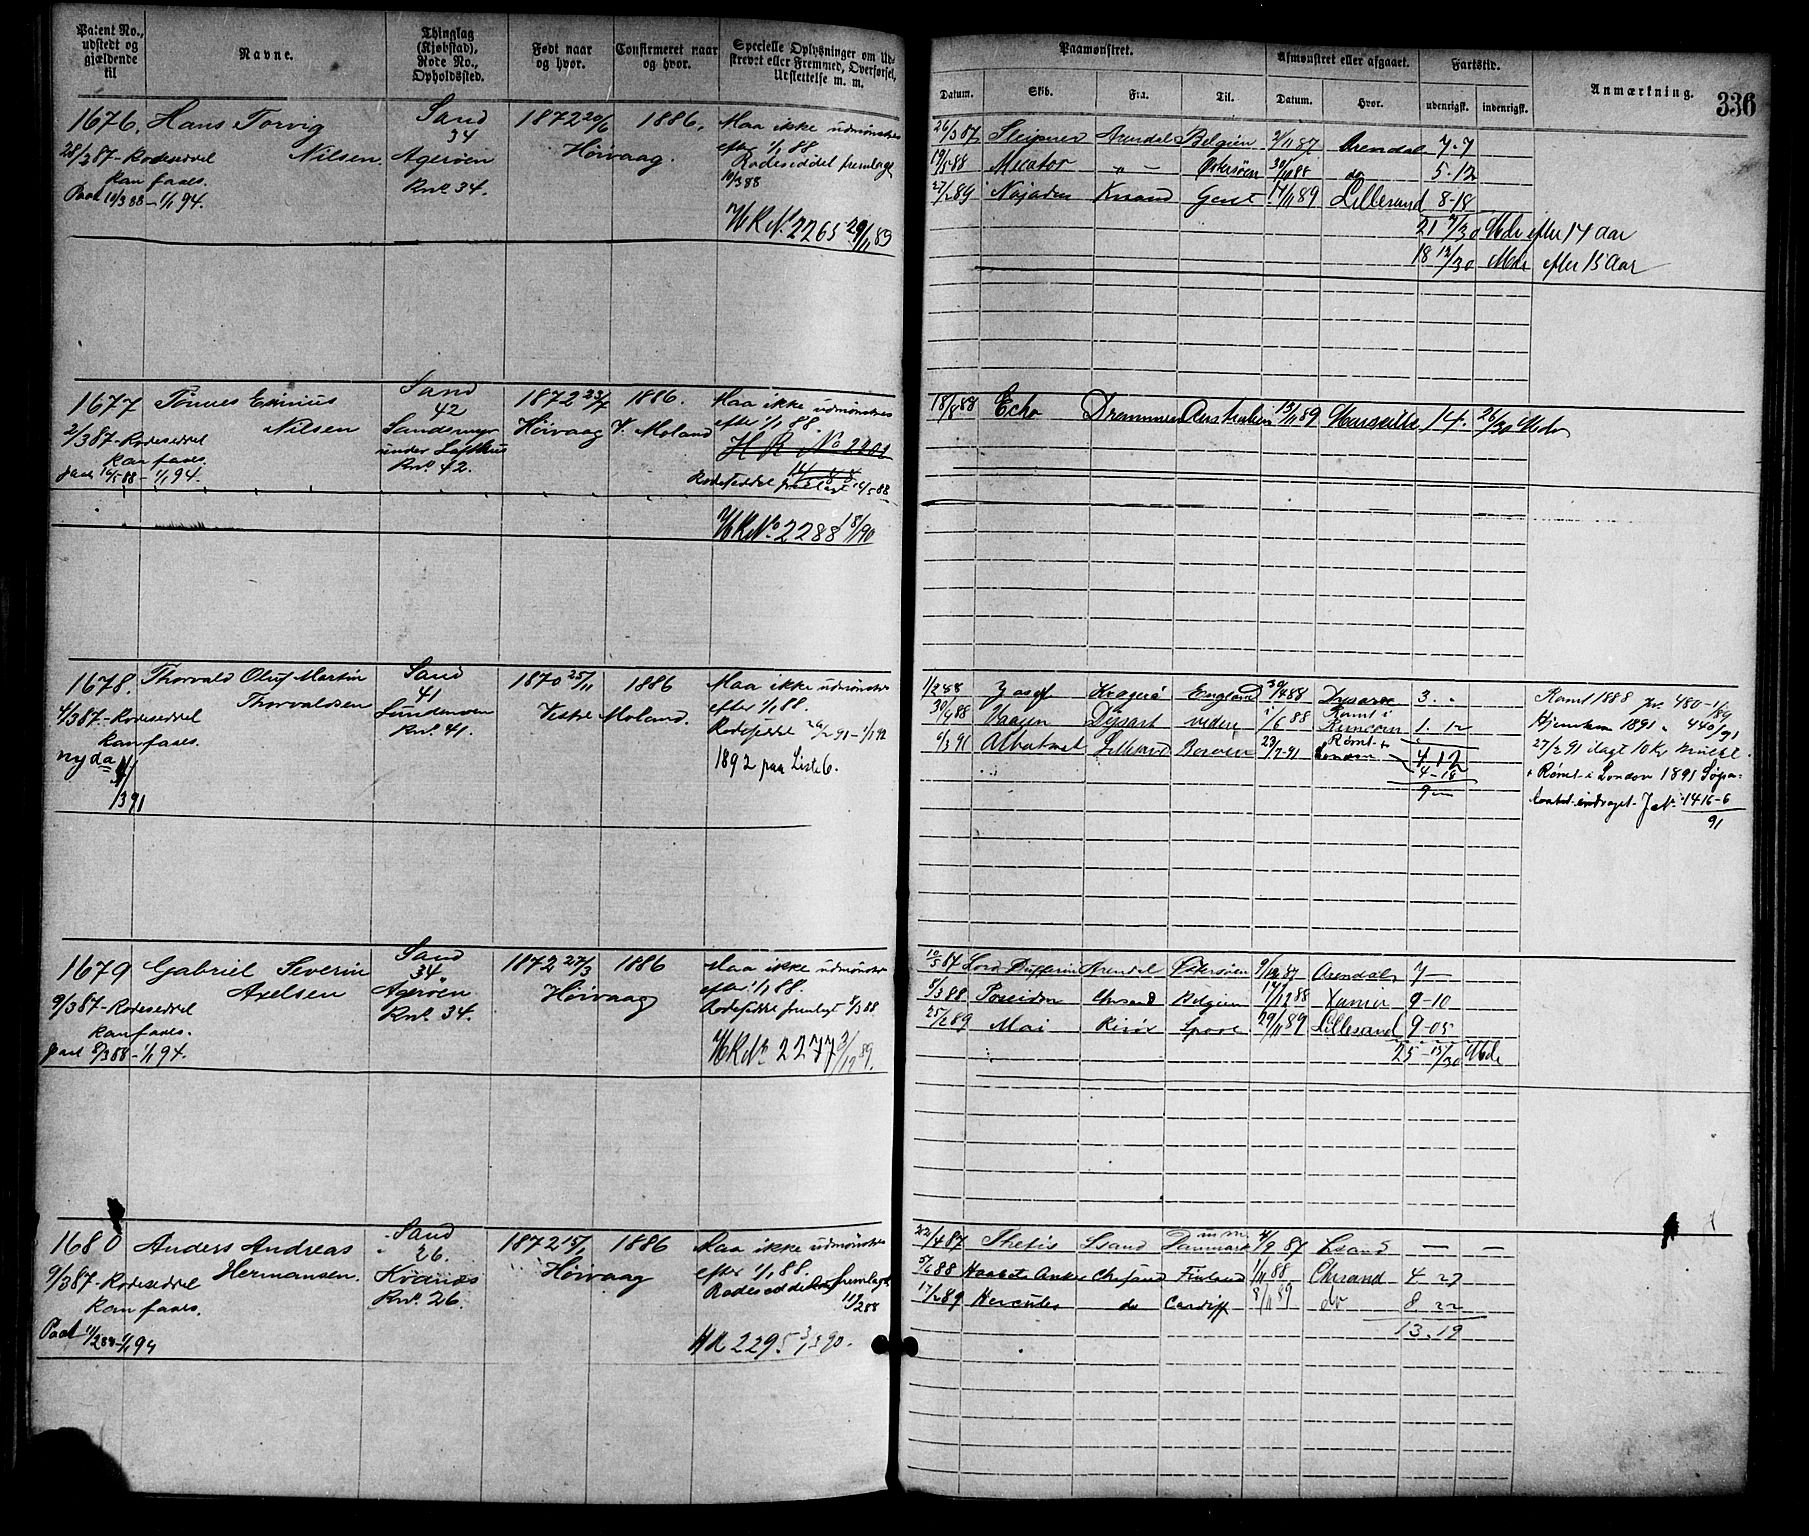 Patent No., udstedt og gjældende til
Navne.
Thinglag (Kjøbstad), Rode No., Opholdssted.
Født naar og hvor.
Confirmeret naar og hvor.
Specielle Oplysninger om Udskrevet eller Fremmed, Overførsel, Udslettelse m. m.
Paamønstret.
Datum.
Skib.
Fra.
Til.
Afmønstret eller afgaaet.
Datum.
Hvor.
Fartstid.
udenrigsk.
indenrigsk.
Anmærkning.
336
1676. Hans Torvig Nilsen
28/3 87 - Rodeseddel
kan faaes.
Paat 10/3 88 - 1/1 94.
Sand
34
Agerøen
Rnk. 34.
1872 20/6
1886.
Høivaag.
Maa ikke udmønstres
efter 1/1 88.
Rodeseddel fremlagt
10/3 88
HR No. 2265 29/11 89
26/3 87 Sleipner Arendal Belgien 2/11 87 Arendal 7-7
19/5 88 Østersøen 30/11 88 do 5-12
27/2 89 Najaden Krsand Gent 17/11 89 Lillesand 8-18
21 7/30 Mdr efter 14 Aar
18 12/30 Mdr efter 15 Aar
1677 Tønnes Nilsen
2/3 87 - Rodeseddel
kan faaes.
16/5 88 - 1/1 94.
Sand
42
under
Rnk. 42.
1872 23/7
1886.
Høivaag V. Moland
Maa ikke udmønstres
efter 1/1 88.
H R No 2202
Rodeseddel fremlagt 16/5 88
HR No. 2288 18/1 90
18/8 88 Echo Drammen Australien 13/11 89 Marseille 14. 26/30 Mdr
1678. Thorvald Oluf Martin
Thorvaldsen
4/3 87 - Rodeseddel
kan faaes.
ny da
Sand
41
Rnk. 41.
1870 25/11
1886
Vestre Moland.
Maa ikke udmønstres
efter 1/1 88.
1892 paa Liste 6.
1/2 88 Josef Kragerø England 30/4 88 3. "
30/4 88 Vaagen Dysart 1/6 88 Rømt i 1. 12
6/3 91 Albatros Lillesand 23/7 91 Rømt London 4 12
4-18
9 -
Rømt 1888 Jr. 480-1/89
Hjemkom 1891 " 440/91
27/2 91 ilagt 10 Kr mulkt.
+ Rømt i London 1891
inddraget. J. No. 1416-6/91
1679 Gabriel Severin
Axelsen
9/3 87 - Rodeseddel
kan faaes.
8/3 88 - 1/1 94.
Sand
34
Agerøen
Rnk. 34.
1872 27/3
1886
Høivaag
Maa ikke udmønstres
efter 1/1 88.
Rodeseddel fremlagt 8/3 88
HR No. 2277 3/12 89.
10/3 87 Lord Dufferin Arendal Østersøen Arendal 7 -
8/3 88 Poseidon Chrsand Belgien 14/12 88 9-10
25/2 89 Mai Risør 29/11 89 Lillesand 9-05
25 - 15/30 Mdr
1680 Anders Andreas
Hermansen.
9/3 87 - Rodeseddel
kan faaes.
Paat 11/2 88 - 1/1 94
Sand
26.
Kvanæs
Rnk. 26.
1872 15/1
1886
Høivaag
Maa ikke udmønstres
efter 1/1 88.
Rodeseddelen fremlagt
11/2 88
HR 2295 3/3 90.
22/4 87 Thetis Lsand Danmark m. m. 4/9 87 Lsand - -
5/6 88 Haabets Anker Chrsand Finland 1/11 88 Chrsand 4 27
17/2 89 Hercules do Cardiff 8/11 89 do 8 22
13. 19